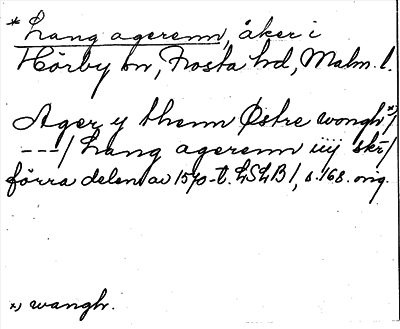 * Lang agerenn, åker i
Hörby sn, Frosta hd, Malm. l.
Ager y thenn Østre wongh *)/
---/ Lang agerenn iiij skr/
förra delen av 1570-t. LSLB1, s. 168. orig.
*) wangh.